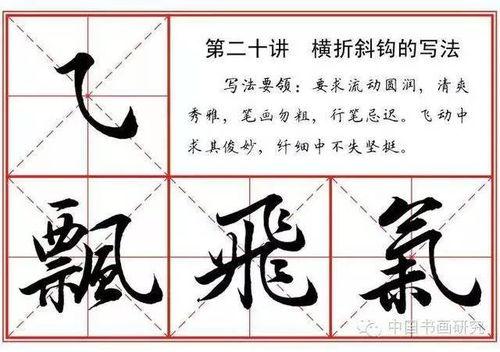 第二十讲 横折斜钩的写法
写法要领：要求流动圆润，清爽
秀雅，笔画勿粗，行笔忌迟。飞动中
求其俊妙，纤细中不失坚挺。
⺄
飘飛氣
中国书画研究